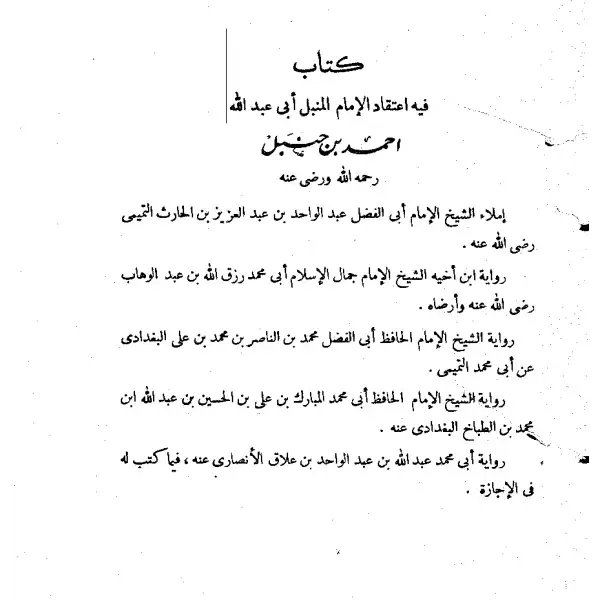 كتاب
فيه اعتقاد الإمام المنبل أبى عبد الله
احمد بن حنبل
رحمه الله ورضى عنه
إملاء الشيخ الإمام أبى الفضل عبد الواحد بن عبد العزيز بن الحارث التميمى
رضى الله عنه .
رواية ابن أخيه الشيخ الإمام جمال الإسلام أبى محمد رزق الله بن عبد الوهاب
رضى الله عنه وأرضاه .
رواية الشيخ الإمام الحافظ أبى الفضل محمد بن الناصر بن محمد بن على البغدادى
عن أبى محمد التميمى .
رواية الشيخ الإمام الحافظ أبى محمد المبارك بن على بن الحسين بن عبد الله ابن
محمد بن الطباخ البغدادى عنه .
رواية أبى محمد عبد الله بن عبد الواحد بن علاق الأنصارى عنه ، فيما كتب له
فى الإجازة .